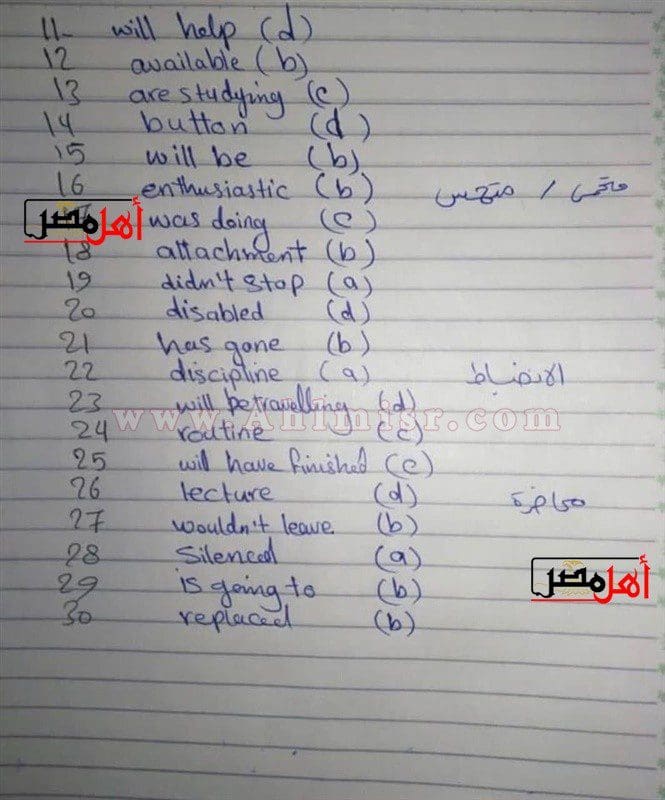 11- will help (d)
12 available (b)
13 are studying (c)
14 button (d)
15 will be (b)
16 enthusiastic (b) متحمس /
أهل مصر was doing (c)
18 attachment (b)
19 didn't stop (a)
20 disabled (d)
21 has gone (b)
22 discipline (a) الانضباط
23 will be travelling (d)
www.Ahlmisr.com
24 routine (c)
25 will have finished (c)
26 lecture (d) محاضرة
27 wouldn't leave (b)
28 Silenced (a)
29 is going to (b) أهل مصر
30 replaced (b)